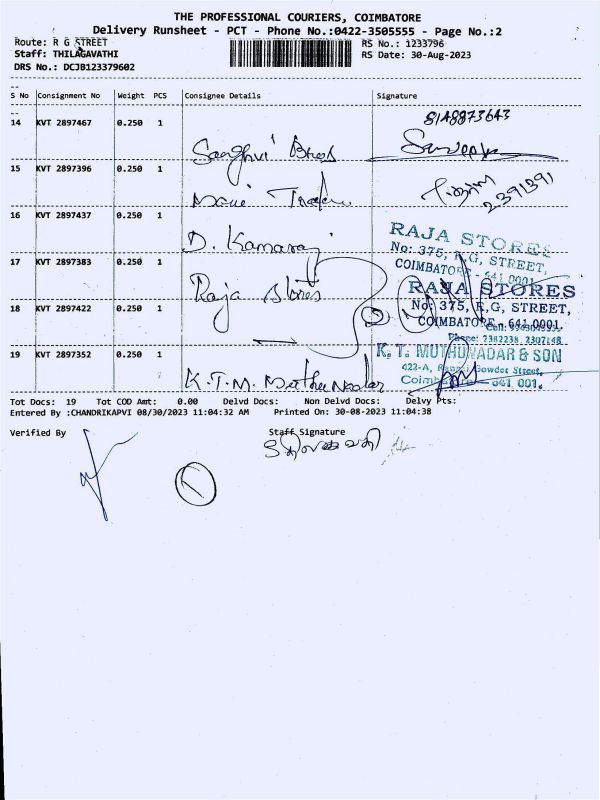 THE PROFESSIONAL COURIERS, COIMBATORE
Delivery Runsheet - PCT - Phone No.:0422-3505555 - Page No.:2
Route: R G STREET
RS No.: 1233796
Staff: THILAGAVATHI
RS Date: 30-Aug-2023
DRS No.: DCJB123379602
S No Consignment No Weight PCS Consignee Details Signature
14 KVT 2897467 0.250 1
8148873643
Sanghvi Bros
15 KVT 2897396 0.250 1
2391391
16 KVT 2897437 0.250 1
D. Kamaraj
RAJA STORES
No: 375, R.G, STREET,
17 KVT 2897383 0.250 1
COIMBATORE - 641 0001.
Raja Stores
RAJA STORES
No: 375, R.G, STREET,
18 KVT 2897422 0.250 1
COIMBATORE - 641 0001.
Phone: 2382238, 2307148
19 KVT 2897352 0.250 1
K. T. MUTHUNADAR & SON
422-A, Gowder Street,
Coimbatore 641 001.
K.T.M. Muthu Nadar
Tot Docs: 19 Tot COD Amt: 0.00 Delvd Docs: Non Delvd Docs: Delvy Pts:
Entered By :CHANDRIKAPVI 08/30/2023 11:04:32 AM Printed On: 30-08-2023 11:04:38
Verified By Staff Signature